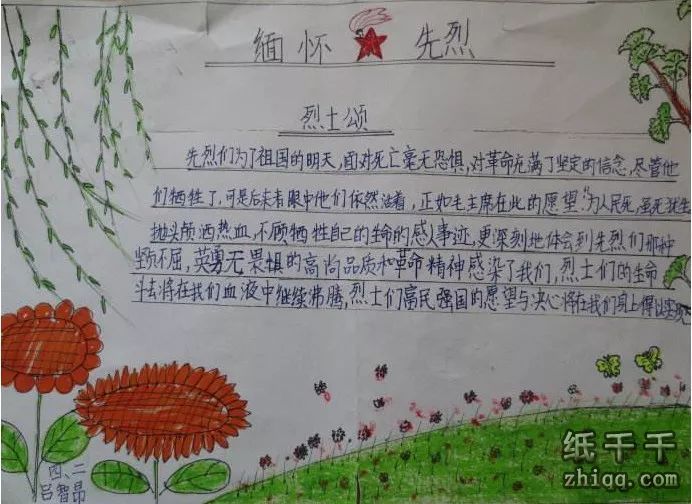 缅怀 先烈
烈士颂
先烈们为了祖国的明天，面对死亡毫无恐惧，对革命充满了坚定的信念，尽管他
们牺牲了，可是后来者眼中他们依然活着，正如毛主席在此的愿望："为人民死，虽死犹生
抛头颅洒热血，不顾牺牲自己的生命的感人事迹，更深刻地体会到先烈们那种
坚贞不屈，英勇无畏惧的高尚品质和革命精神感染了我们，烈士们的生命
斗去将在我们血液中继续沸腾，烈士们富民强国的愿望与决心将在我们身上得以实现
四、二
吕智昂
纸干干
zhiqq.com